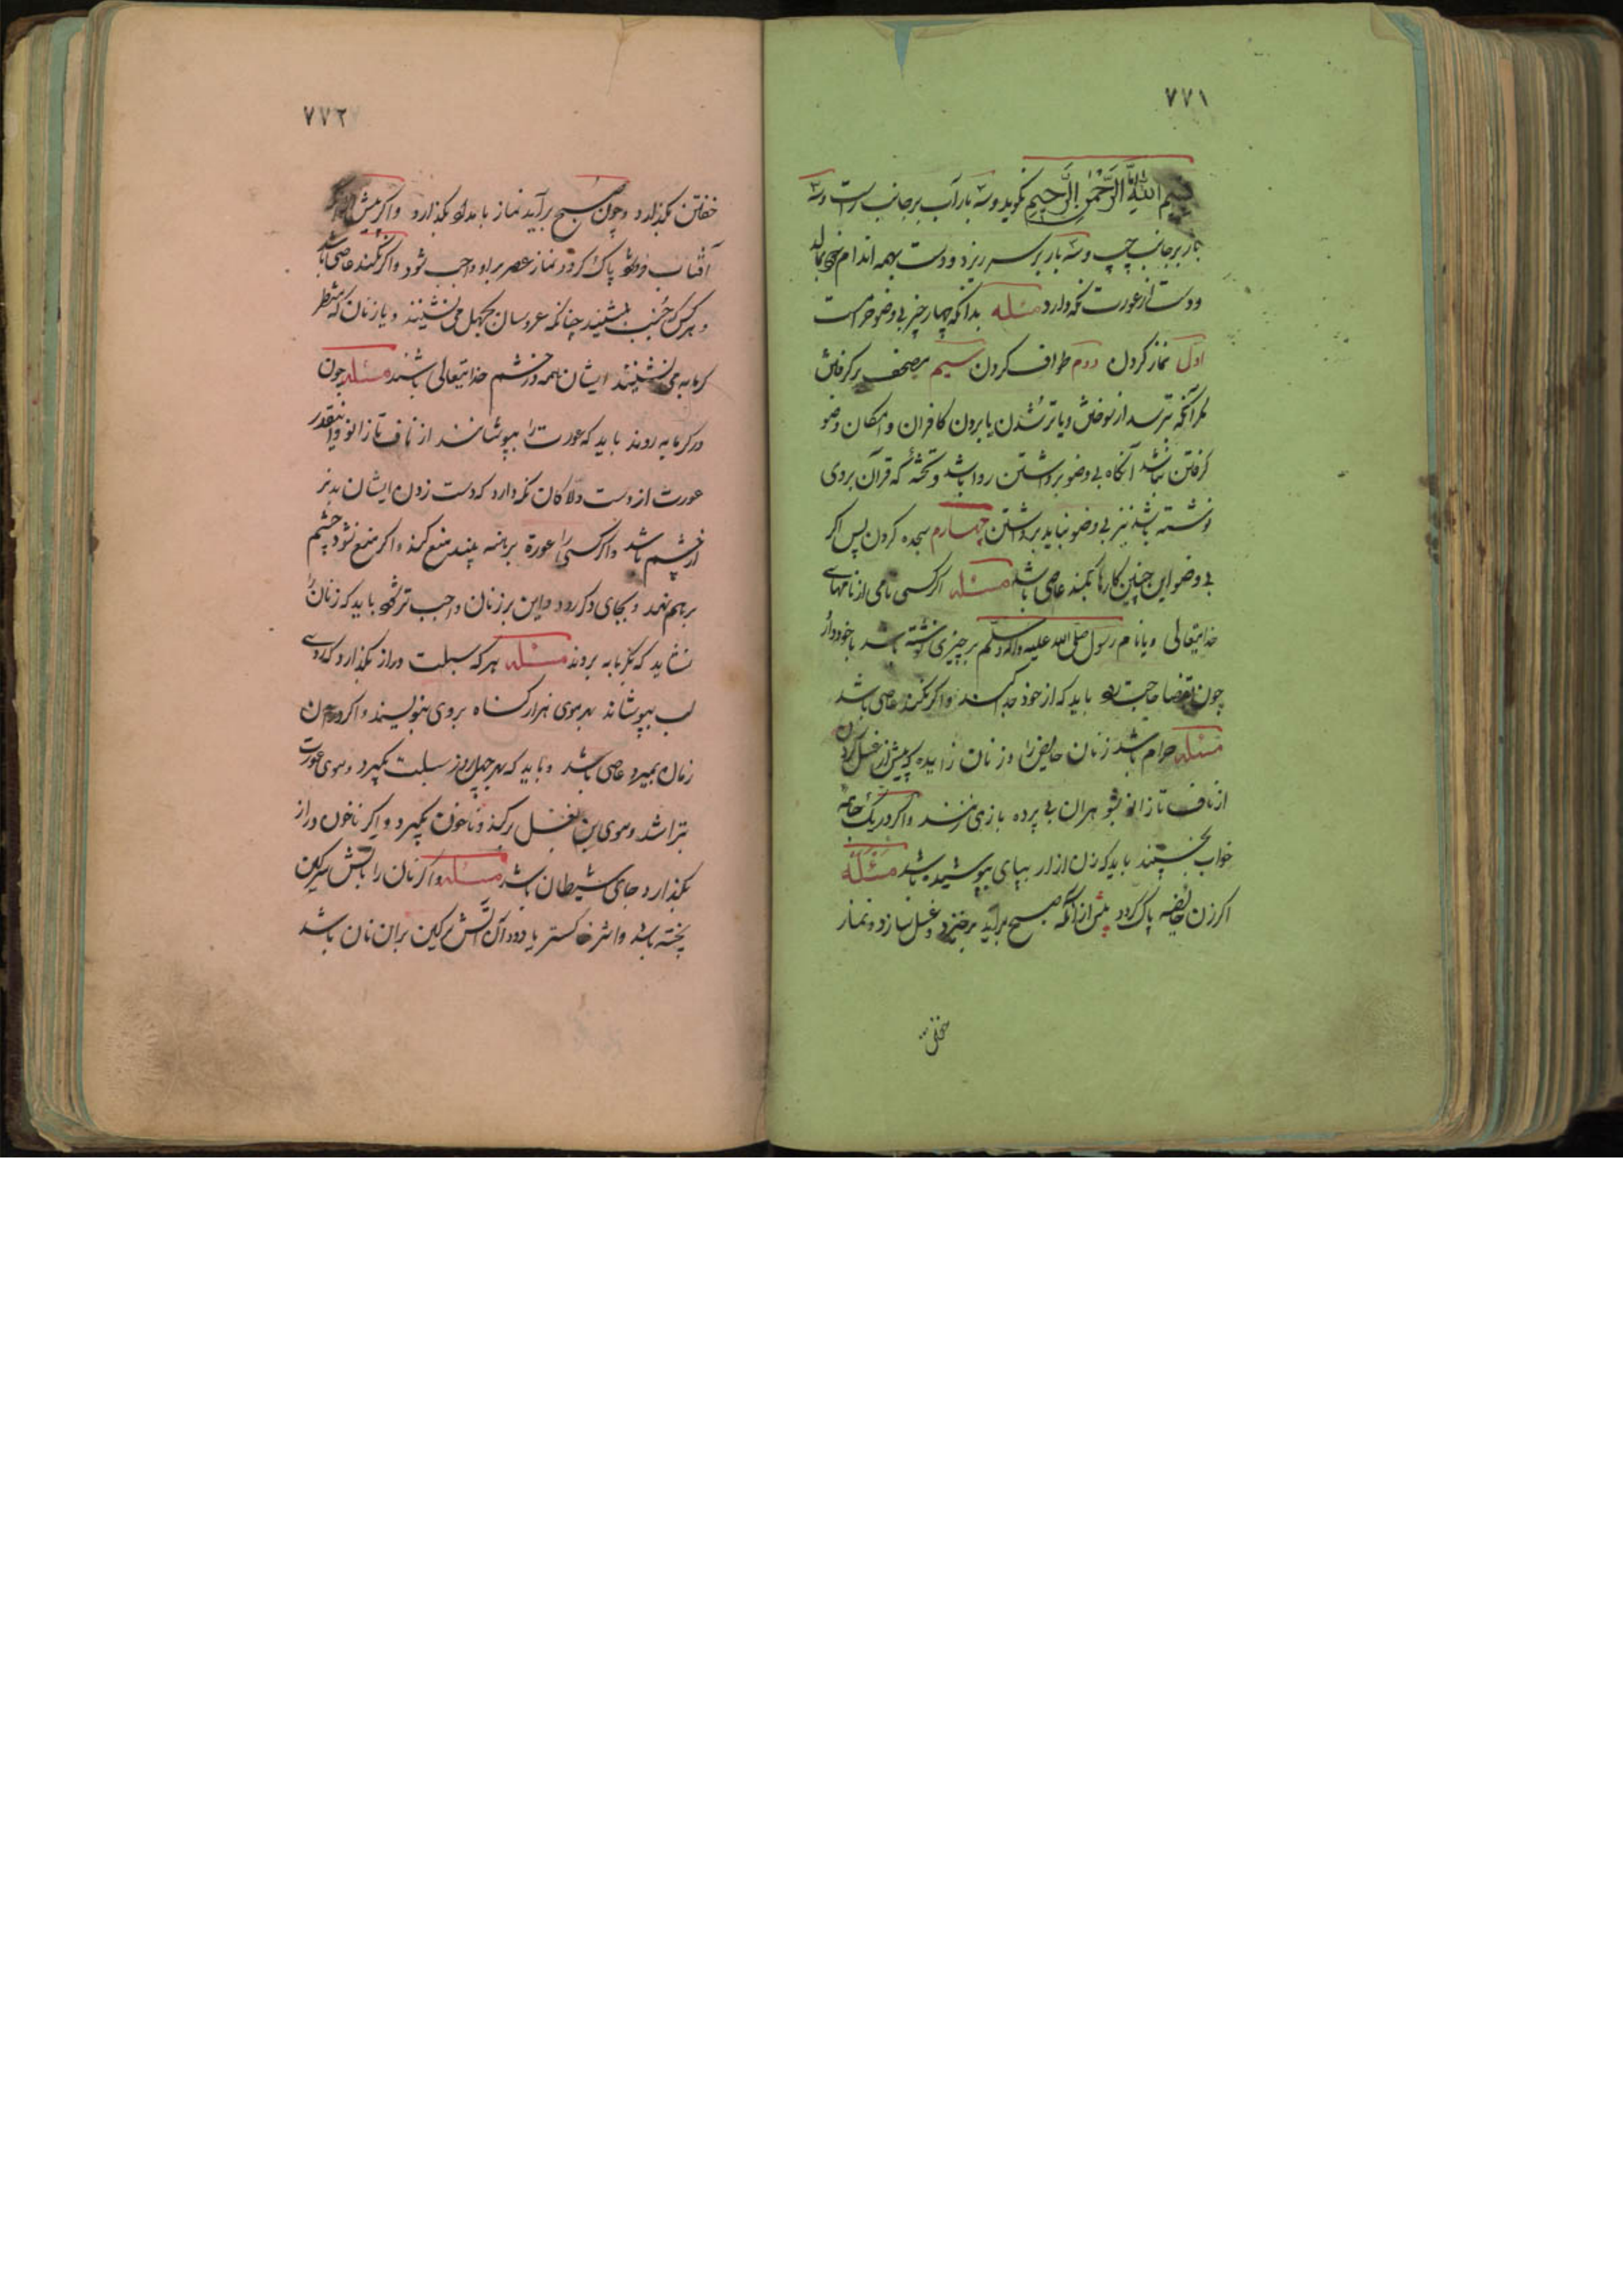 ۷۷۱
بسم الله الرحمن الرحیم بکوید و سه بار آب بر جانب راست و سه
بار بر جانب چپ و سه بار بر سر ریزد و دست بهمه اندام خود بمالد
و دست از عورت نکه دارد مسئله بدانکه چهار چیز بی وضو حرامست
اول نماز کردن دوم طواف کردن سیم مصحف برکرفتن
مکر آنکه بترسد از سوختن و یا تر شدن یا بردن کافران و امکان وضو
کرفتن نباشد آنکاه بی وضو برداشتن روا باشد و تخته که قرآن بروی
نوشته باشد نیز بی وضو نباید برداشتن چهارم سجده کردن پس اکر
بی وضو این چنین کارها بکند عاصی باشد مسئله اکر کسی نامی از نامهای
خدایتعالی و یا نام رسول صلی الله علیه واله وسلم بر چیزی نوشته باشد با خود دارد
چون بقضا حاجت رود باید که از خود جدا کند و اکر نکند عاصی باشد
مسئله حرام باشد زنان حایض را و زنان زاییده که پیش از غسل کردن
از ناف تا زانو بشوهران بی پرده بازی کنند و اکر در یک جامه
خواب بخسپند باید که زن ازار بپای پوشیده باشد مسئله
اکر زن حائضه پاک کردد پیش از آنکه صبح براید برخیزد و غسل سازد و نماز
خفتن
۷۷۲
خفتن بکذارد و چون صبح برآید نماز بامداد بکذارد و اکر پیش از
آفتاب فرو شود پاک کردد نماز عصر بر او واجب شود و اکر نکند عاصی باشد
و هر کس که جنب بنشیند چنانکه عروسان بجهل می نشینند و یا زنان که بنظر
کرمابه می نشینند ایشان همه در خشم خدایتعالی باشند مسئله چون
در کرمابه روند باید که عورت را بپوشانند از ناف تا زانو و اینقدر
عورت از دست دلاکان نکه دارد که دست زدن ایشان بدتر
از چشم باشد و اکر کسی را عورة برهنه بیند منع کند و اکر منع نشود چشم
برهم نهد و بجای دکر رود و این بر زنان واجب تر بود باید که زنان را
نشاید که بکرمابه بروند مسئله هر که سبلت دراز بکذارد که روی
لب بپوشاند بهر موی هزار کناه بروی بنویسند و اکر در آن
زمان بمیرد عاصی باشد و باید که بهر چهل روز سبلت بکیرد و موی عورت
بتراشد و موی بن بغل برکند و ناخون بکیرد و اکر ناخون دراز
بکذارد جای شیطان باشد مسئله و اکر نان را بآتش سرکین
پخته باشد و اثر خاکستر یا دود آن آتش سرکین بران نان باشد